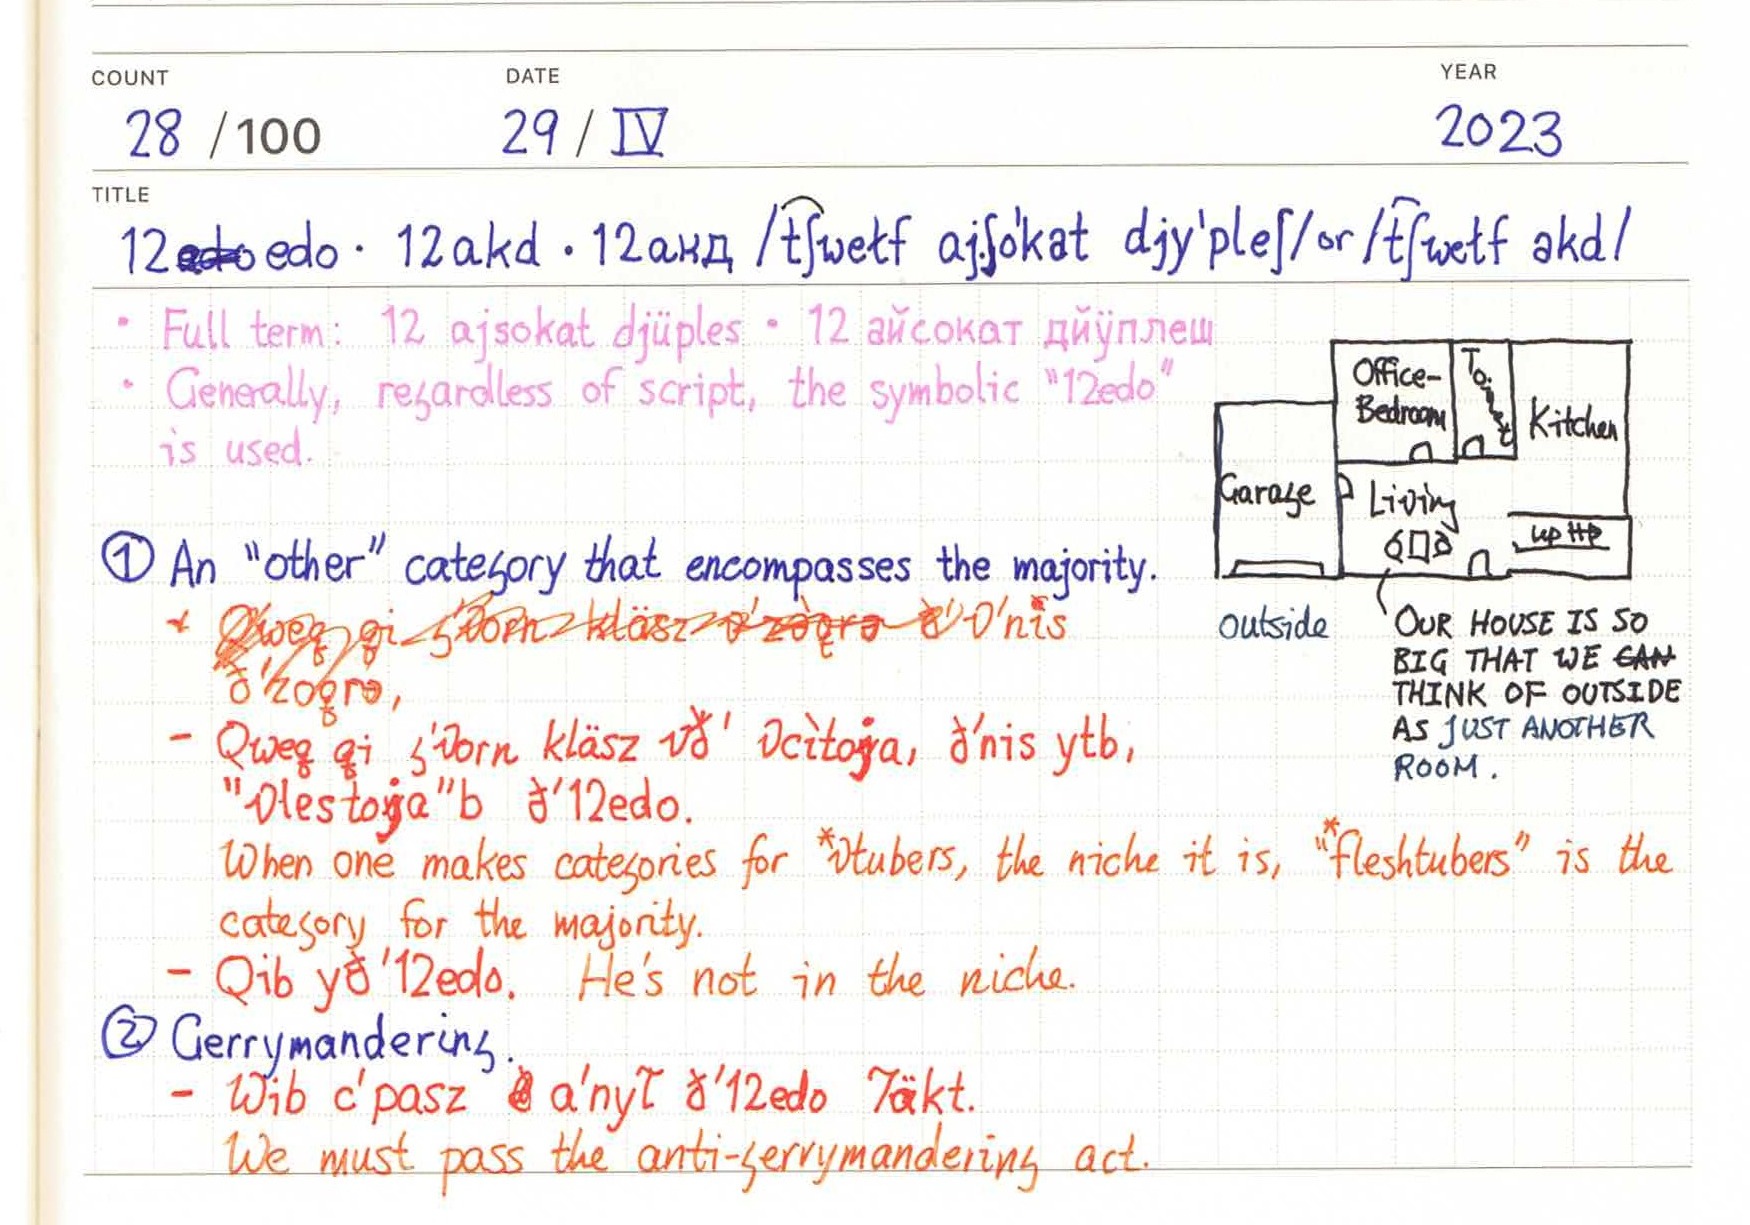 COUNT DATE YEAR
28 /100 29 / IV 2023
TITLE
12 edo edo · 12akd · 12акд /t͡ʃwetf ajʃo'kat djy'pleʃ/ or /t͡ʃwetf əkd/
• Full term: 12 ajsokat djüples • 12 айсокат дйӱплеш
• Generally, regardless of script, the symbolic "12edo"
is used.
Office-
Bedroom
Toilet
Kitchen
Garage
Living
up
outside
OUR HOUSE IS SO
BIG THAT WE CAN
THINK OF OUTSIDE
AS JUST ANOTHER
ROOM.
① An "other" category that encompasses the majority.
kläsz
When one makes categories for *vtubers, the niche it is, "*fleshtubers" is the
category for the majority.
- Qib yð'12edo. He's not in the niche.
② Gerrymandering.
- Wib c'pasz ð'12edo
We must pass the anti-gerrymandering act.